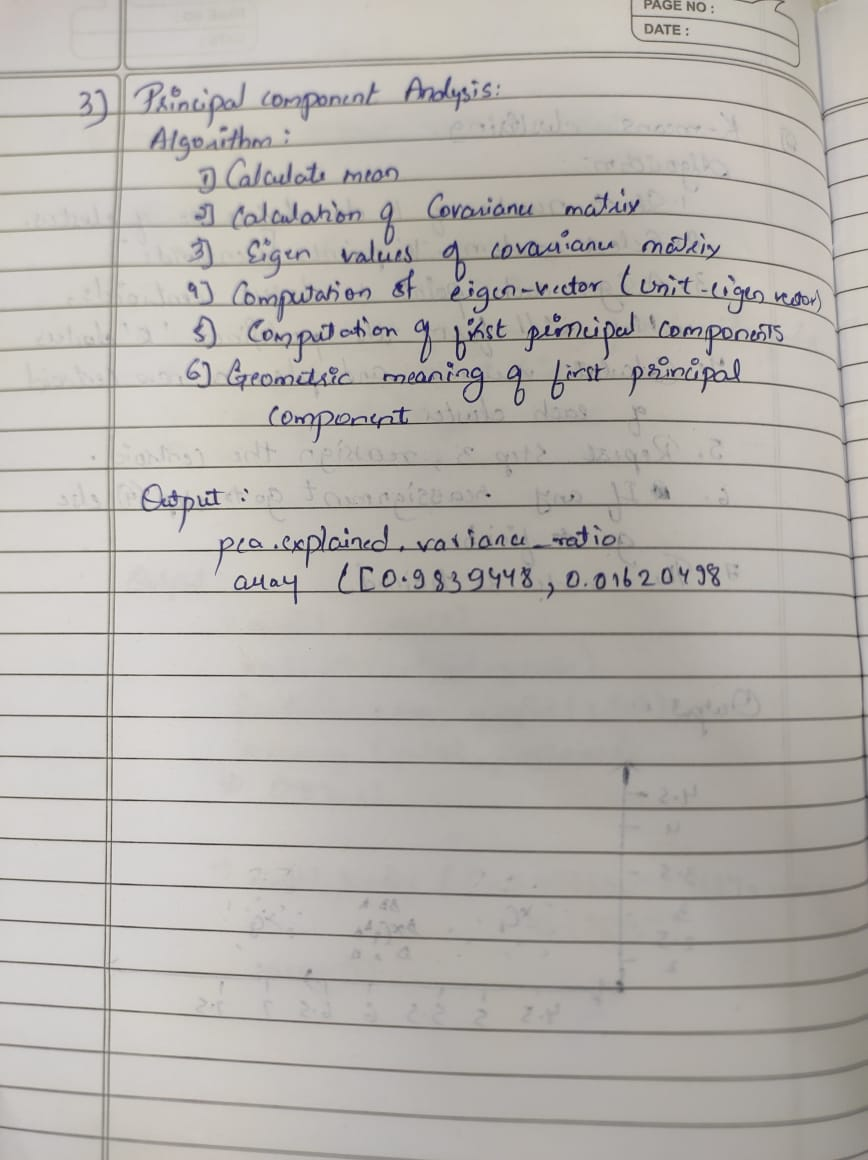 PAGE NO :
DATE :
3) Principal component Analysis:
Algorithm :
1) Calculate mean
2) Calculation of Covariance matrix
3) Eigen values of covariance matrix
4) Computation of eigen-vector (Unit-eigen vector)
5) Computation of first principal components
6) Geometric meaning of first principal
component
Output :
pca.explained.variance_ratio
array ([0.9839448, 0.01620498